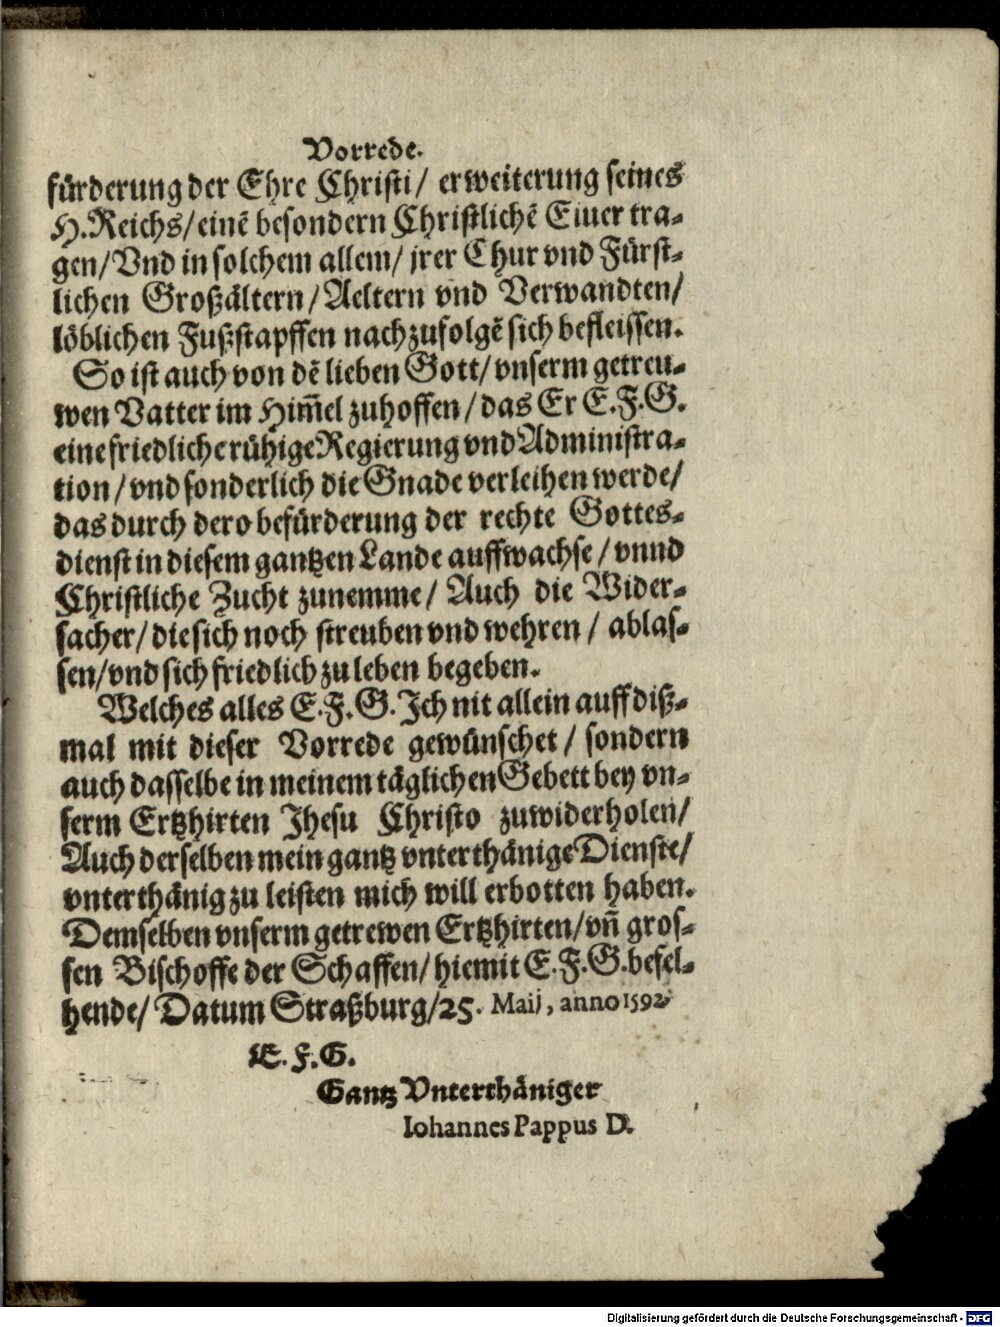 Vorrede.
fürderung der Ehre Christi/ erweiterung seines
H. Reichs/ einē besondern Christlichē Eiuer tra-
gen/ Vnd in solchem allem/ jrer Chur vnd Fürst-
lichen Großältern/ Aeltern vnd Verwandten/
löblichen Fußstapffen nachzufolgē sich befleissen.
So ist auch von dē lieben Gott/ vnserm getreu-
wen Vatter im Him̄el zuhoffen/ das Er E. F. G.
eine friedliche rühige Regierung vnd Administra-
tion/ vnd sonderlich die Gnade verleihen werde/
das durch dero befürderung der rechte Gottes-
dienst in diesem gantzen Lande auffwachse/ vnnd
Christliche Zucht zunemme/ Auch die Wider-
sacher/ die sich noch streuben vnd wehren/ ablas-
sen/ vnd sich friedlich zu leben begeben.
Welches alles E. F. G. Ich nit allein auff diß-
mal mit dieser Vorrede gewünschet/ sondern
auch dasselbe in meinem täglichen Gebett bey vn-
serm Ertzhirten Jhesu Christo zuwiderholen/
Auch derselben mein gantz vnterthänige Dienste/
vnterthänig zu leisten mich will erbotten haben.
Demselben vnserm getrewen Ertzhirten/ vn̄ gros-
sen Bischoffe der Schaffen/ hiemit E. F. G. befel-
hende/ Datum Straßburg/ 25. Maij, anno 1592.
E. F. G.
Gantz Vnterthäniger
Iohannes Pappus D.
Digitalisierung gefördert durch die Deutsche Forschungsgemeinschaft - DFG